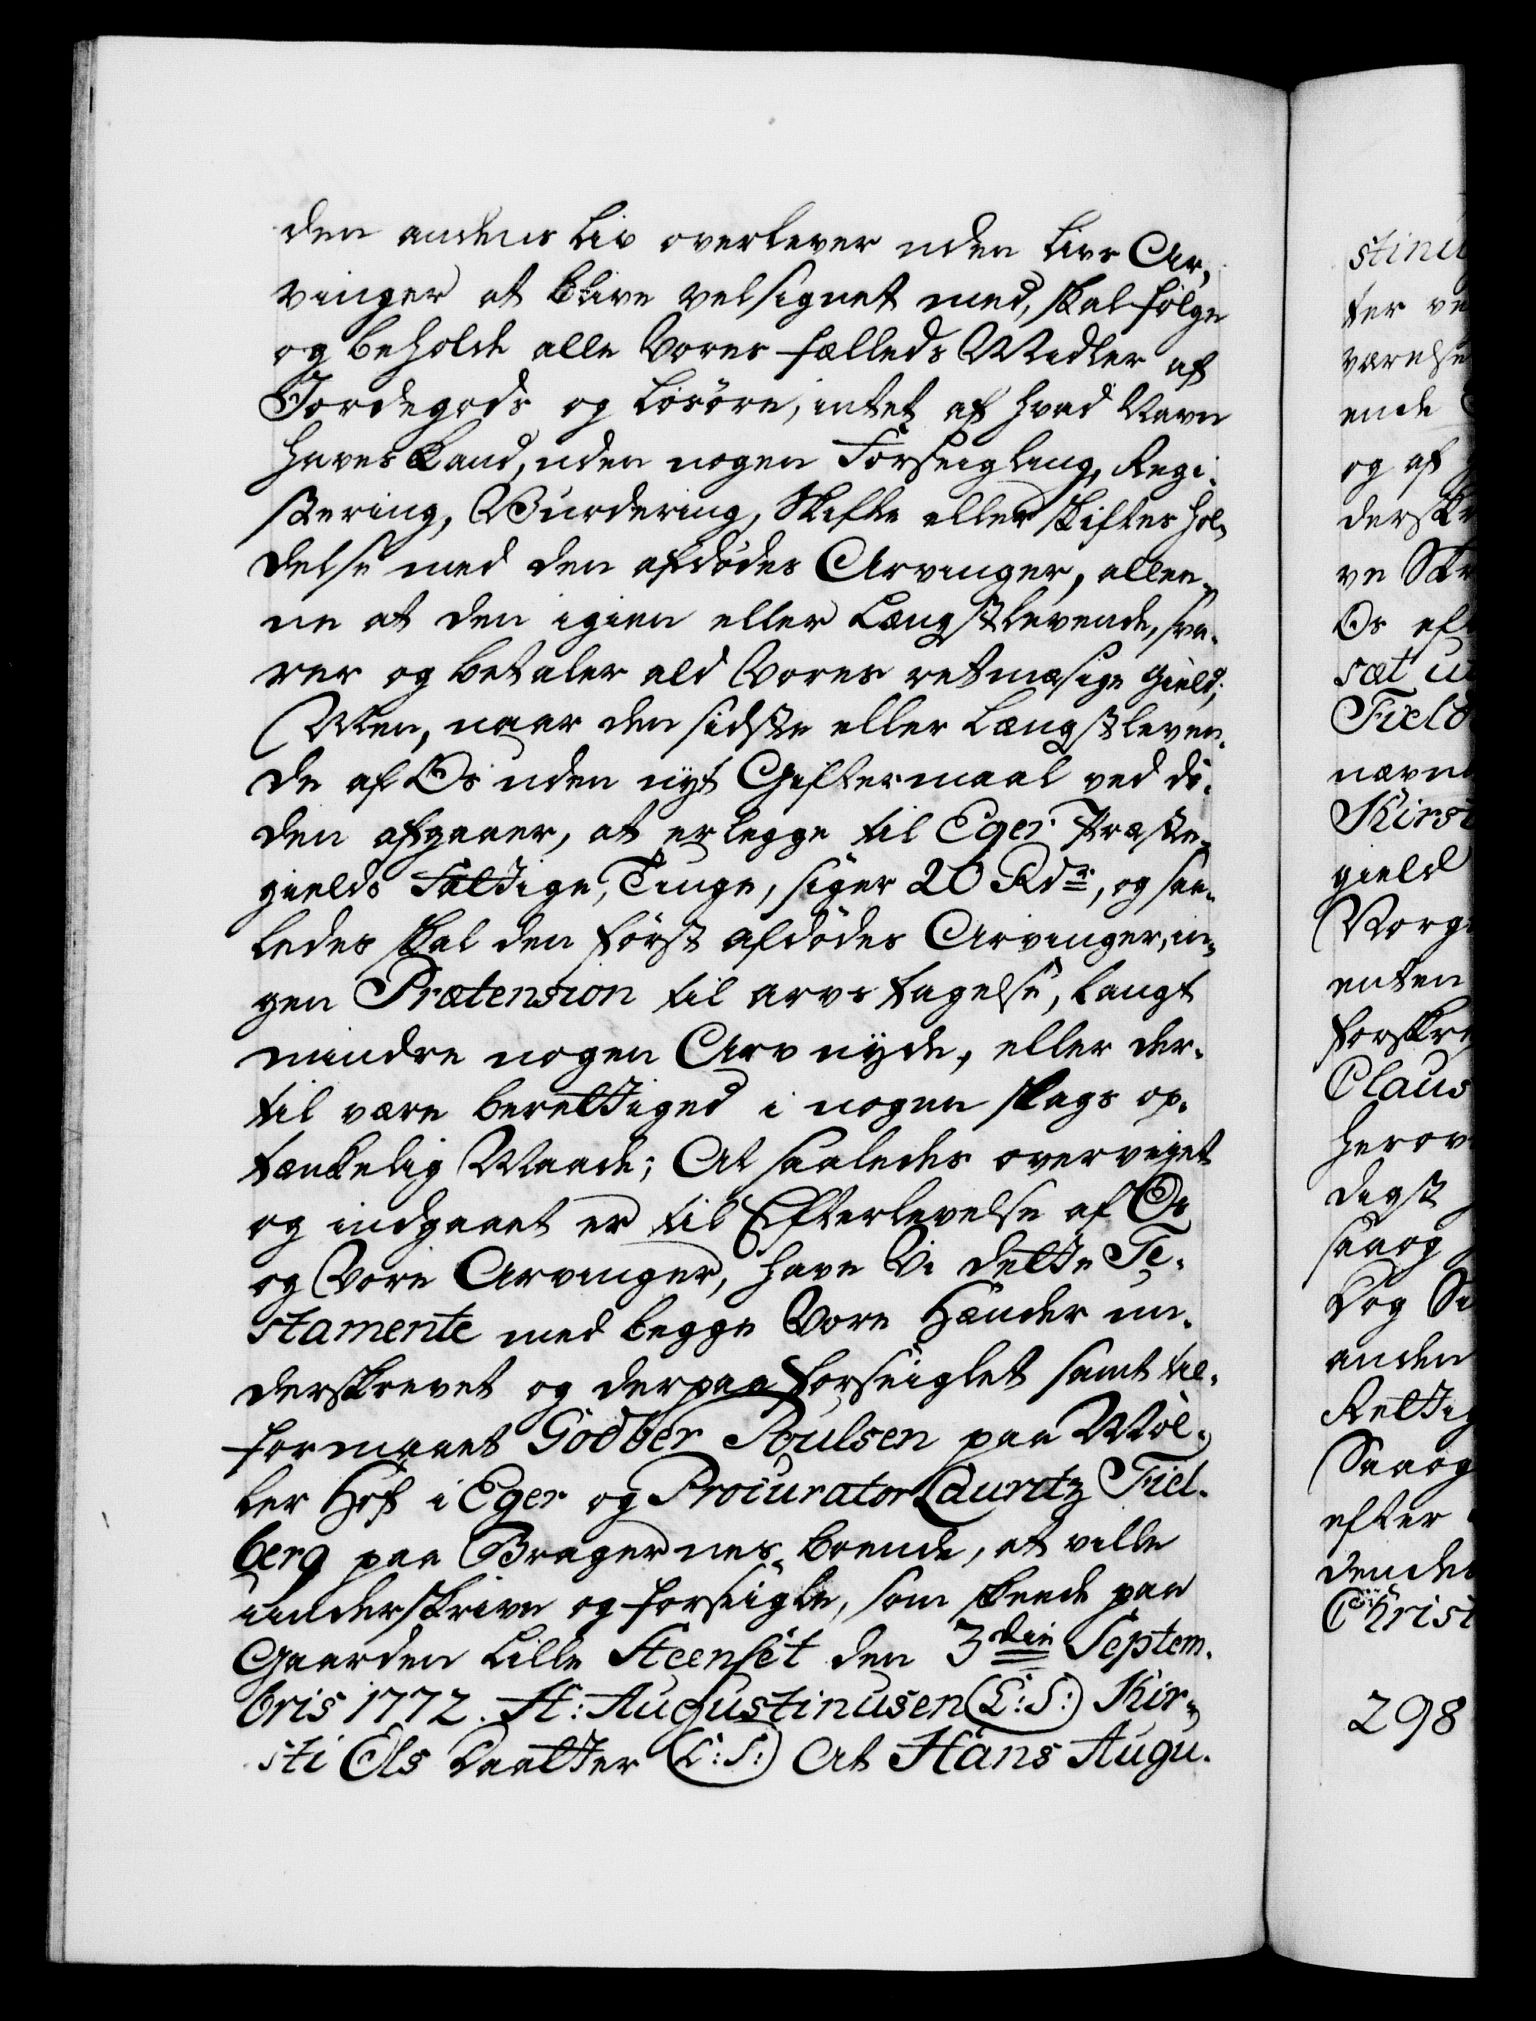 den andens Liv overlever uden Livs Ar,
vinger at blive velsignet med, skal følge
og beholde alle Vores fælleds Midler af
Jordegods og Løsøre, intet af hvad Navn
haves kand, uden nogen Forseigling, Regi-
stering, Vurdering, Skifte eller skiftes hol,
delse med den afdødes Arvinger, allee,
ne at den igien eller Længstlevende, sva-
rer og betaler ald Vores retmæsige Gield;
Men, naar den sidste eller Længstleven-
de af Os uden nyt Giftermaal ved dø-
den afgaaer, at erlegge til Eger Præste,
gields Fattige, Tiuge, siger 20 Rdr, og saa,
ledes skal den først afdødes Arvinger, in,
gen Prætension til arvs tagelse, langt
mindre nogen Arv nyde, eller der-
til være berettiged i nogen slags op-
tænkelig Maade; At saaledes overveyet
og indgaaet er til Efterlevelse af Os
og Vore Arvinger, have Vi dette Te-
stamente med begge Vore Hænder un-
derskrevet og derpaa forseiglet samt til-
formaaet Gödber Poulsen paa Møl,
ler Hof i Eger og Procurator Lauritz Fiel-
berg paa Bragernes boende, at ville
underskrive og forseigle, som skeede paa
Gaarden Lille Steenset den 3die Septem-
bris 1772. H: Augustinusen (L:S:) Kir,
sti Els Daatter (L:S:) At Hans Augu-
stinu
ter ve
værelse
ende
og af
derskr
ve Skr
Os eft
sæt u
Field
nævn
Kirst
gield
Norge
enten
forskre
Claus
herov
digst
saaog
Dog Sa
anden
Rettig
Saaog
efter
dendes
Christ
298